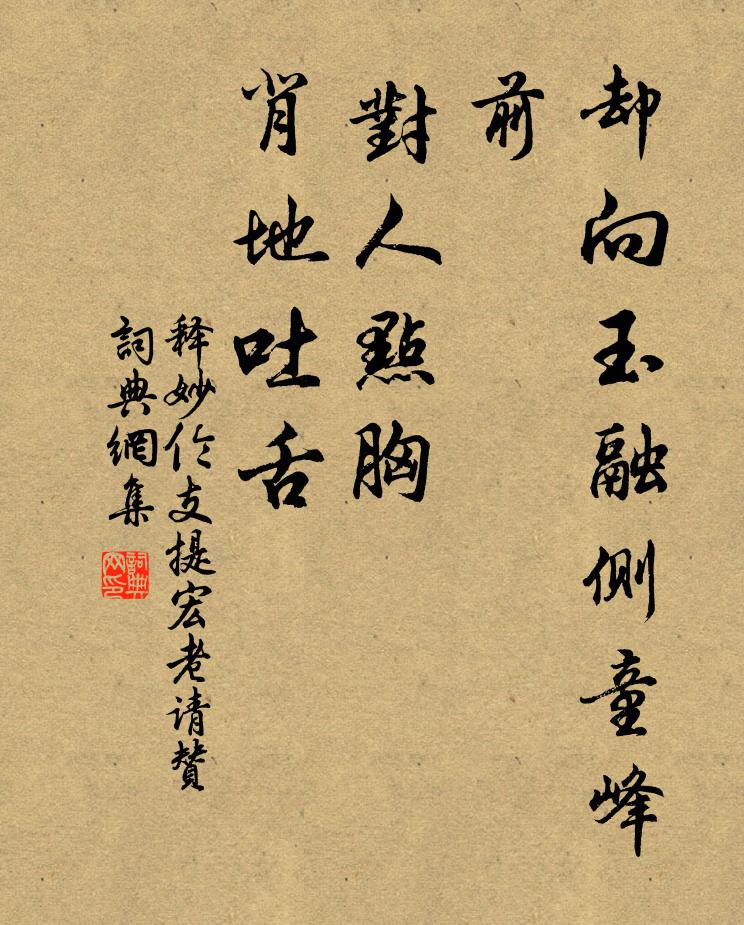 却向玉融側童峰
前
對人點胸
背地吐舌
释妙伦支提宏老请贊
詞典網集
詞典网印